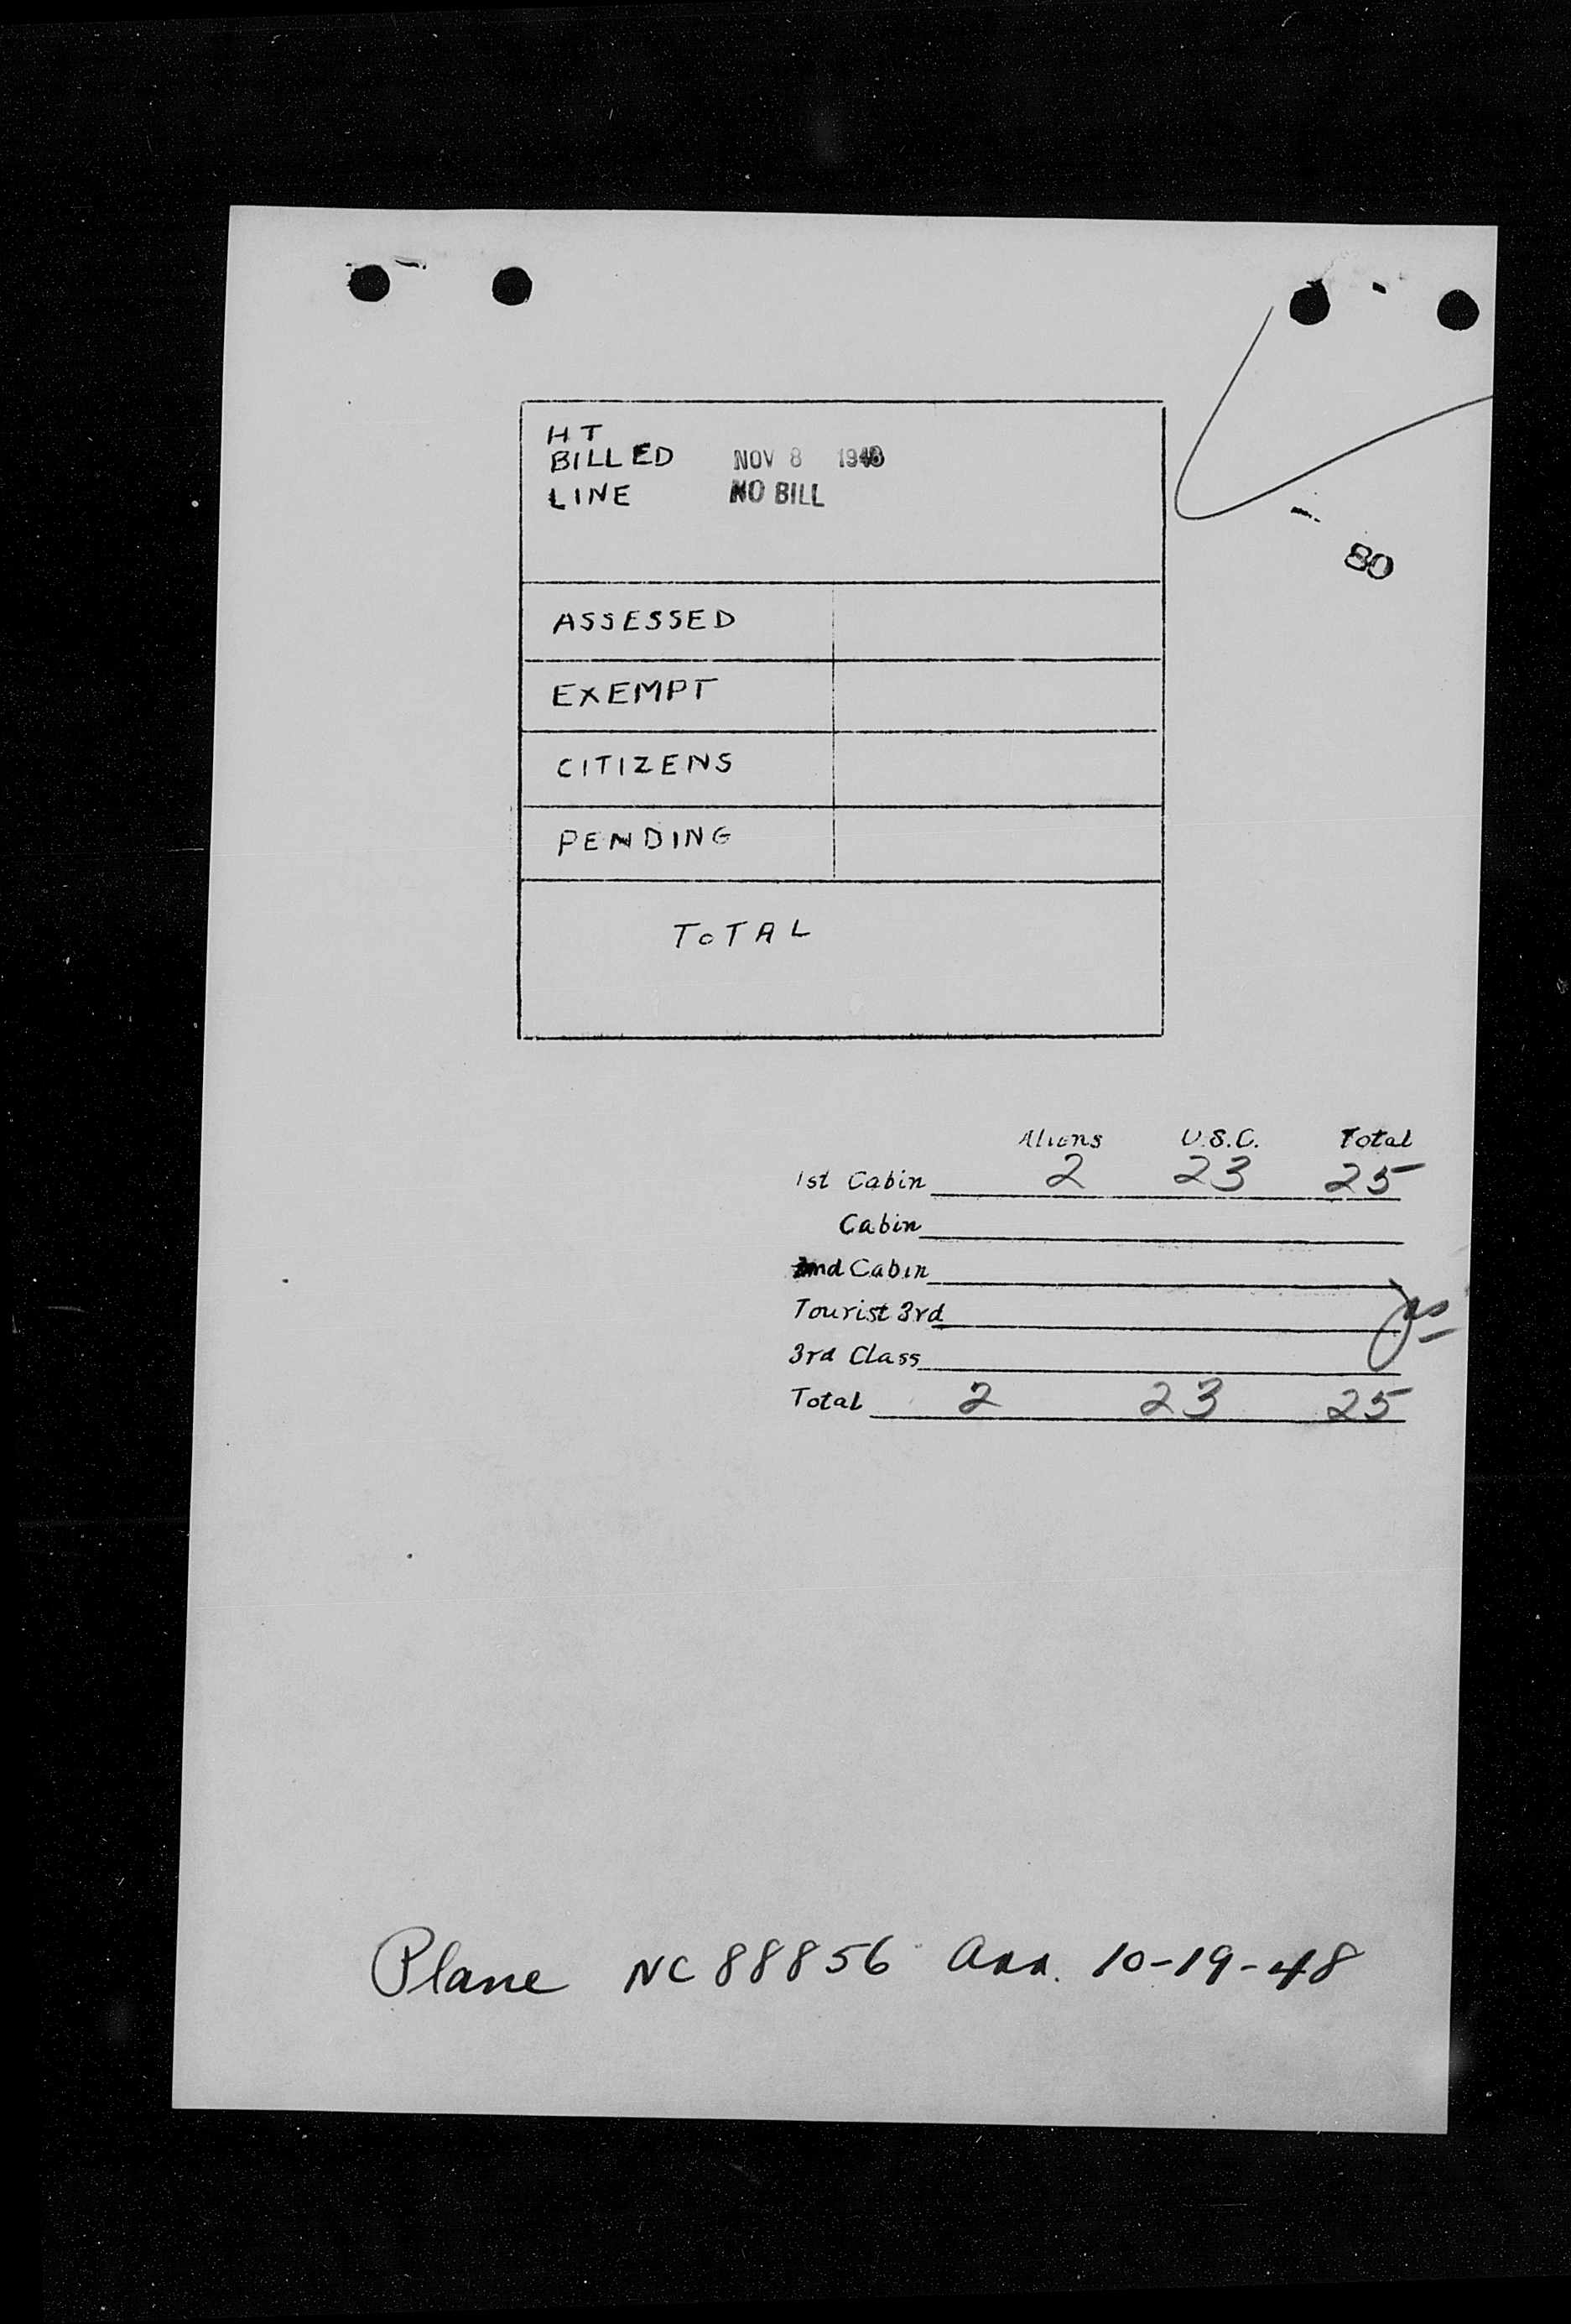 HT
BILLED NOV 8 1948
LINE NO BILL
80
ASSESSED
EXEMPT
CITIZENS
PENDING
TOTAL
Aliens U.S.C. Total
1st Cabin 2 23 25
Cabin
2nd Cabin
Tourist 3rd
3rd Class
Total 2 23 25
Plane NC 88856 arr. 10-19-48